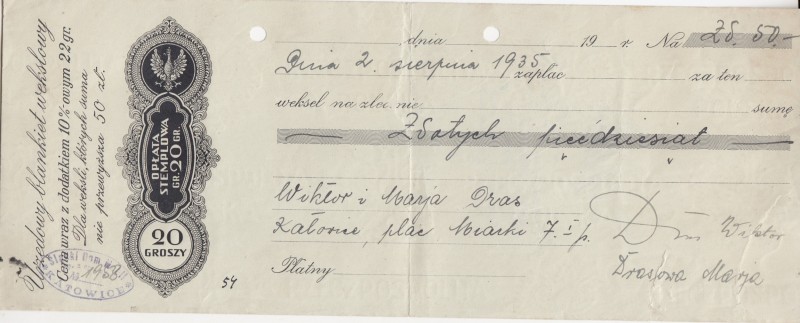 Urzędowy blankiet wekslowy
Cena wraz z dodatkiem 10%-owym 22 gr.
Dla weksli, których suma
nie przewyższa 50 zł.
OPŁATA
STEMPLOWA
GR. 20 GR.
20
GROSZY
KATOWICE
54
dnia 19 r. Na Zł. 50,-
Dnia 2. sierpnia 1935 zapłac za ten
weksel na zlec.nie sumę
Złotych pięćdziesiąt
Wiktor i Marja Dras
Katowice, plac Miarki 7. I p.
Płatny
Dras Wiktor
Drasowa Marja